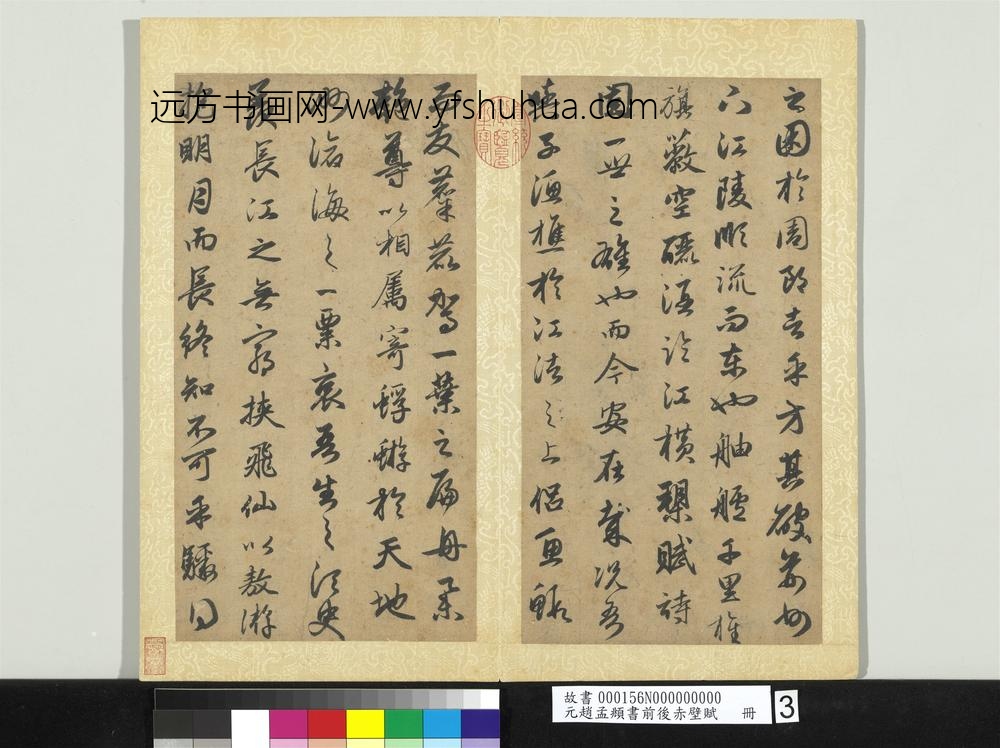 远方书画网-www.yfshuhua.com
之困於周郎者乎方其破荊州
下江陵順流而東也舳艫千里旌
旗蔽空釃酒臨江橫槊賦詩
固一世之雄也而今安在哉況吾
與子漁樵於江渚之上侶魚蝦
而友麋鹿駕一葉之扁舟舉
匏尊以相屬寄蜉蝣於天地
渺滄海之一粟哀吾生之須臾
羨長江之無窮挾飛仙以敖游
抱明月而長終知不可乎驟得
故書 000156N000000000
元趙孟頫書前後赤壁賦 冊
3